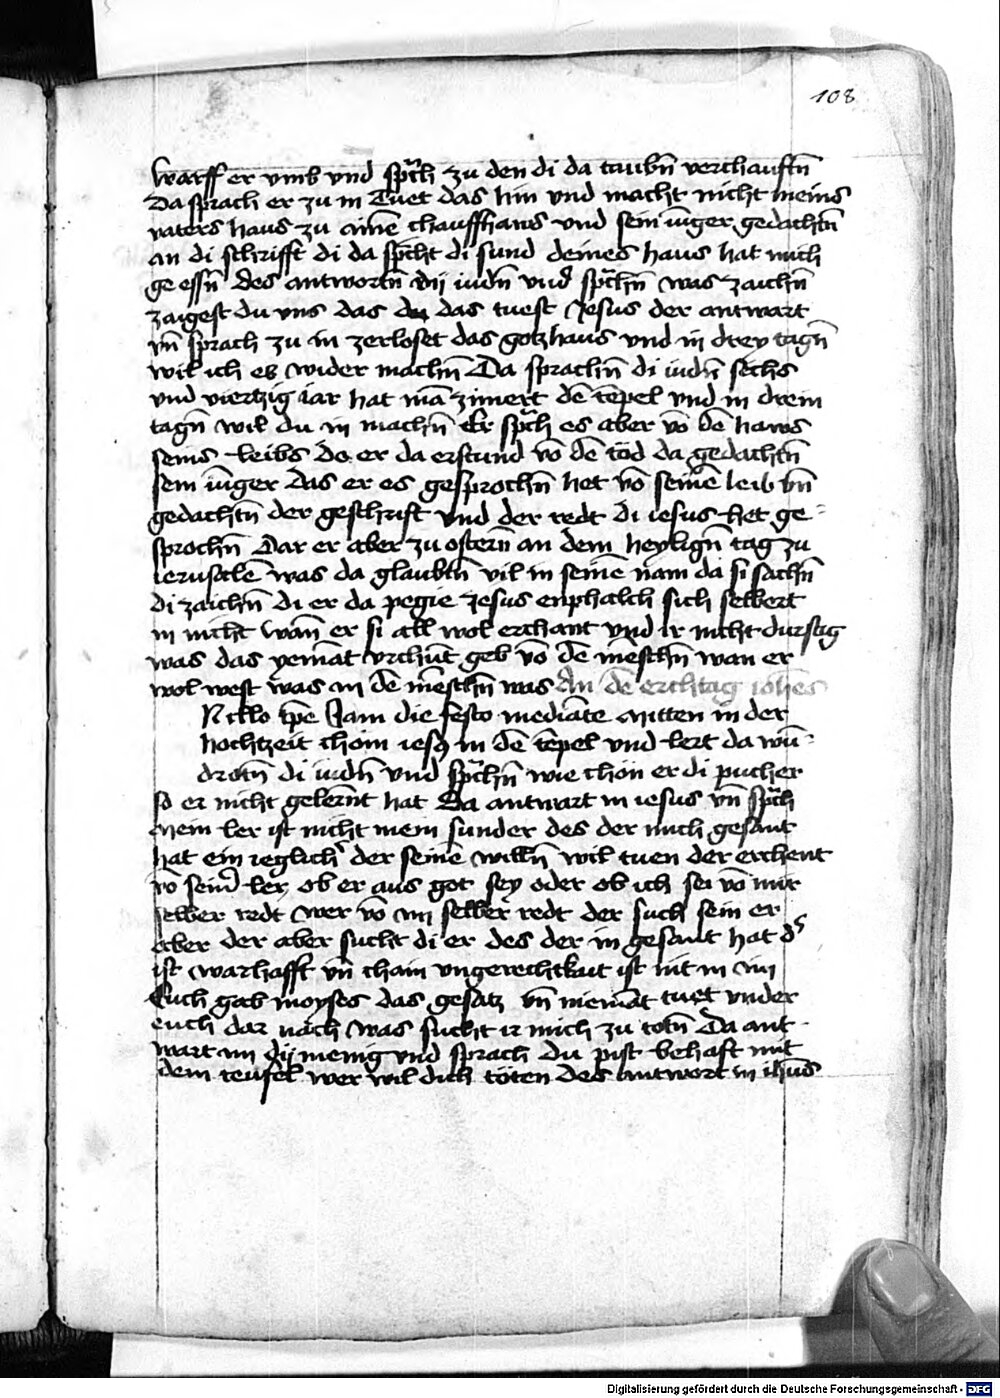 108
warff er vmb vnd sprach zu den di da taubn̄ verchauftn̄
Da sprach er zu in Tuet das hin vnd macht nicht meins
vaters haus zu aine chauffhaws vnd sein iu̇ger gedachtn̄
an di schrifft di da spricht di sund deines haus hat mich
ge essn̄ des antwortn̄ dij iudn̄ vnd sprachn̄ was zaichn̄
zaigest du vns das du das tuest Jesus der antwart
vn̄ sprach zu in zerloset das gotzhaus vnd in drey tagn̄
wil ich es wider machn̄ Da sprachn̄ di iudn̄ sechs
vnd viertzig iar hat mā zimert dē tēpel vnd in drein
tagn̄ wil du in machn̄ Er sprach es aber vō dē haws
seins leibs do er da erstund vō dē tod da gedachtn̄
sein iu̇ger das er es gesprochn̄ het vō seinē leib vn̄
gedachtn̄ der geschrift vnd der redt di iesus het ge-
sprochn̄ Dar er aber zu ostern̄ an dem heylign̄ tag zu
ierusalē was da glaubtn̄ vil in seinē nam da si sachn̄
di zaichn̄ di er da pegie Jesus enphalch sich selbert
in nicht wān er si all wol erchant vnd ir nicht durftig
was das yemāt vrchūt geb vō dē mēschn̄ wan er
wol west was in dē mēschn̄ was An dē erchtag iohēs
Nillo tpe Jam die festo mediāte Mitten in der
hochtzeit chom iesus in dē tēpel vnd lert da wū-
drotn̄ di iudn̄ vnd sprachn̄ wie chon er di pucher
so er nicht gelernt hat Da antwart in iesus vn̄ sprach
Mein ler ist nicht mein sunder des der mich gesant
hat ein ieglicher der seinē willn̄ wil tuen der erchent
vō seiner ler ob er aus got sey oder ob ich sei vō mir
selber redt wer vō im selber redt der such sein er
aber der aber sucht di er des der in gesant hat der
ist warhafft vn̄ chain vngerechtkait ist nit in im
Euch gab moyses das gesatz vn̄ niemāt tuet vnder
euch dar nach was sucht ir mich zu totn̄ Da ant-
wart im dij menig vnd sprach du pist behaft mit
dem teufel wer wil dich töten des antwort in ihūs
Digitalisierung gefördert durch die Deutsche Forschungsgemeinschaft - DFG